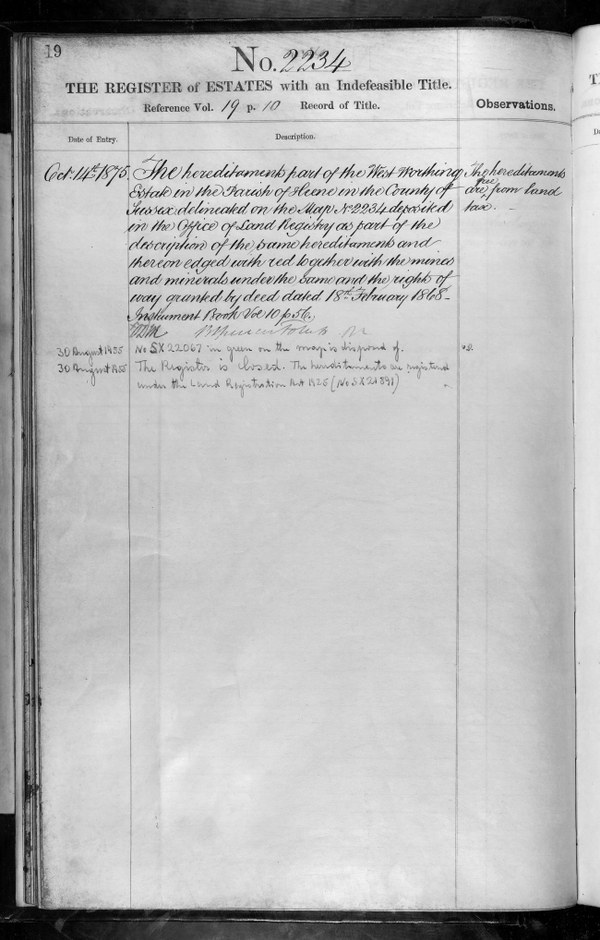 19
No. 2234
THE REGISTER of ESTATES with an Indefeasible Title.
Reference Vol. 19 p. 10 Record of Title.
Observations.
Date of Entry.
Description.
Oct. 14th 1875.
The hereditaments part of the West Worthing
Estate in the Parish of Heene in the County of
Sussex delineated on the Map No 2234 deposited
in the Office of Land Registry as part of the
description of the same hereditaments and
thereon edged with red together with the mines
and minerals under the same and the rights of
way granted by deed dated 18th February 1868 -
Instrument Book Vol 10 p 56.
The hereditaments
are free from land
tax. -
30 August 1955
No SX 22067 in green on the map is disposed of.
30 August 1955
The Register is closed. The hereditaments are registered
under the Land Registration Act 1925 (No SX 21891)